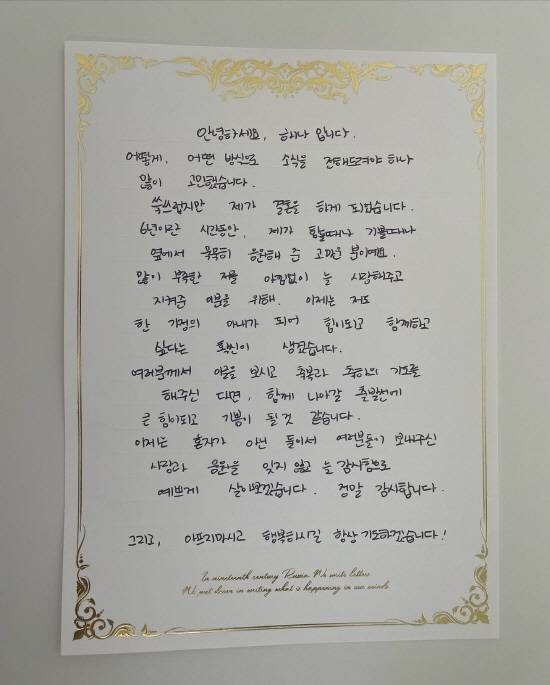 안녕하세요, 하나 입니다.
어떻게, 어떤 방식으로 소식을 전해드려야 하나
많이 고민했습니다.
쑥쓰럽지만 제가 결혼을 하게 되었습니다.
6년이란 시간동안, 제가 힘들때나 기쁠때나
옆에서 묵묵히 응원해 준 고마운 분이예요.
많이 부족한 저를 아낌없이 늘 사랑해주고
지켜준 이분을 위해, 이제는 저도
한 가정의 아내가 되어 힘이되고 함께하고
싶다는 확신이 생겼습니다.
여러분께서 이글을 보시고 축복과 축하의 기도를
해주신 다면, 함께 나아갈 출발선에
큰 힘이되고 기쁨이 될 것 같습니다.
이제는 혼자가 아닌 둘이서 여러분들이 보내주신
사랑과 응원을 잊지 않고 늘 감사함으로
예쁘게 살아보겠습니다. 정말 감사합니다.
그리고, 아프지마시고 행복하시길 항상 기도하겠습니다!
In nineteenth century Russia We write letters
We put down in writing what is happening in our minds